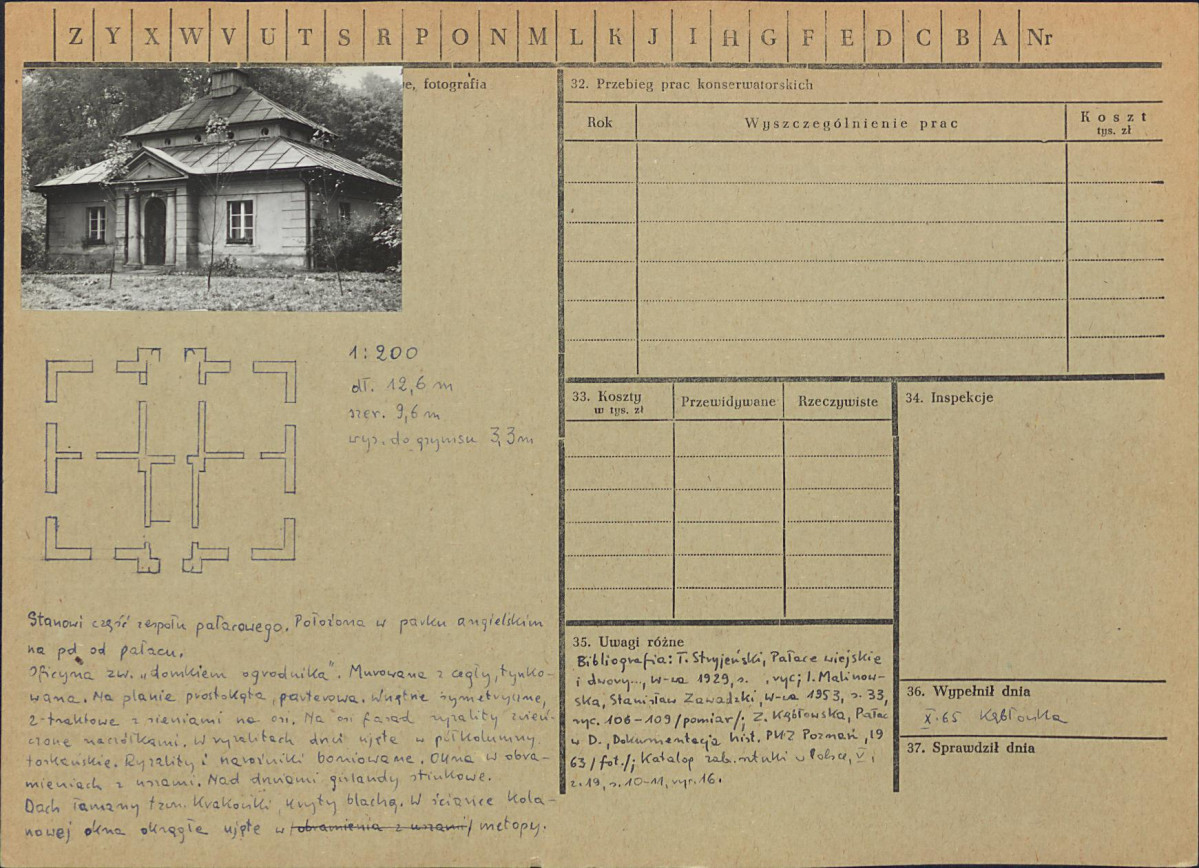 Z Y X W V U T S R P O N M L K J I H G F E D C B A Nr
e, fotografia
1:200
dł. 12,6 m
szer. 9,6 m
wys. do gzymsu 3,3 m
Stanowi część zespołu pałacowego. Położona w parku angielskim
na pd od pałacu.
Oficyna zw. „domkiem ogrodnika". Murowana z cegły, tynko-
wana. Na planie prostokąta, parterowa. Wnętrze symetryczne,
2-traktowe z sieniami na osi. Na osi fasad ryzality zwień-
czone naczółkami. W ryzalitach drzwi ujęte w półkolumny
toskańskie. Ryzality i narożniki boniowane. Okna w obra-
mieniach z uszami. Nad drzwiami girlandy stiukowe.
Dach łamany tzw. Krakowski, kryty blachą. W ściance kola-
nowej okna okrągłe ujęte w /obramienia z uszami/ metopy.
32. Przebieg prac konserwatorskich
Rok
Wyszczególnienie prac
Koszt
tys. zł
33. Koszty
w tys. zł
Przewidywane
Rzeczywiste
34. Inspekcje
35. Uwagi różne
Bibliografia: T. Stryjeński, Pałace wiejskie
i dwory..., W-wa 1929, s. , ryc; I. Malinow-
ska, Stanisław Zawadzki, W-wa 1953, s. 33,
ryc. 106-109 /pomiar/; Z. Kębłowska, Pałac
w D., Dokumentacja hist. PKZ Poznań, 19
63 /fot./; Katalog zab. sztuki w Polsce, V,
z. 19, s. 10-11, ryc. 16.
36. Wypełnił dnia
X.65 Kębłowska
37. Sprawdził dnia